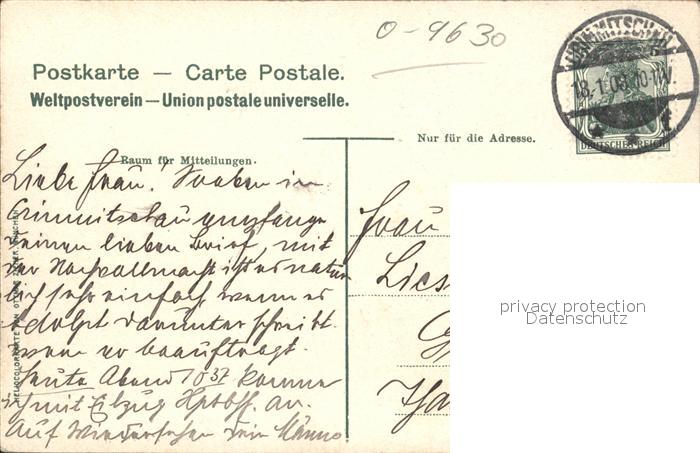 O-9630
CRIMMITSCHAU
18.1.08.10-11V.
DEUTSCHES REICH
Postkarte — Carte Postale.
Weltpostverein — Union postale universelle.
Nur für die Adresse.
Raum für Mitteilungen.
Liebe Frau! Soeben in
Crimmitschau empfange
Deinen lieben Brief, mit
der Postvollmacht ist es natür
lich sehr einfach wenn es
Adolph darunter schreibt.
wenn er beauftragt.
Heute Abend 10 37 komme
ich mit Eilzug Hptbhf. an.
Auf Wiedersehen Dein Männe
Frau
Lies
privacy protection
Datenschutz